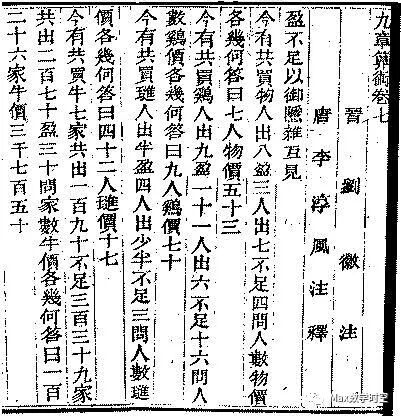 九章算術卷七
晉劉徽注
唐李淳風注釋
盈不足以御隱雜互見
今有共買物人出八盈三人出七不足四問人數物價
各幾何答曰七人物價五十三
今有共買鷄人出九盈一十一人出六不足十六問人
數鷄價各幾何答曰九人鷄價七十
今有共買璡人出半盈四人出少半不足三問人數璡
價各幾何答曰四十二人璡價十七
今有共買牛七家共出一百九十不足三百三十九家
共出二百七十盈三十問家數牛價各幾何答曰一百
二十六家牛價三千七百五十
Max数学时空